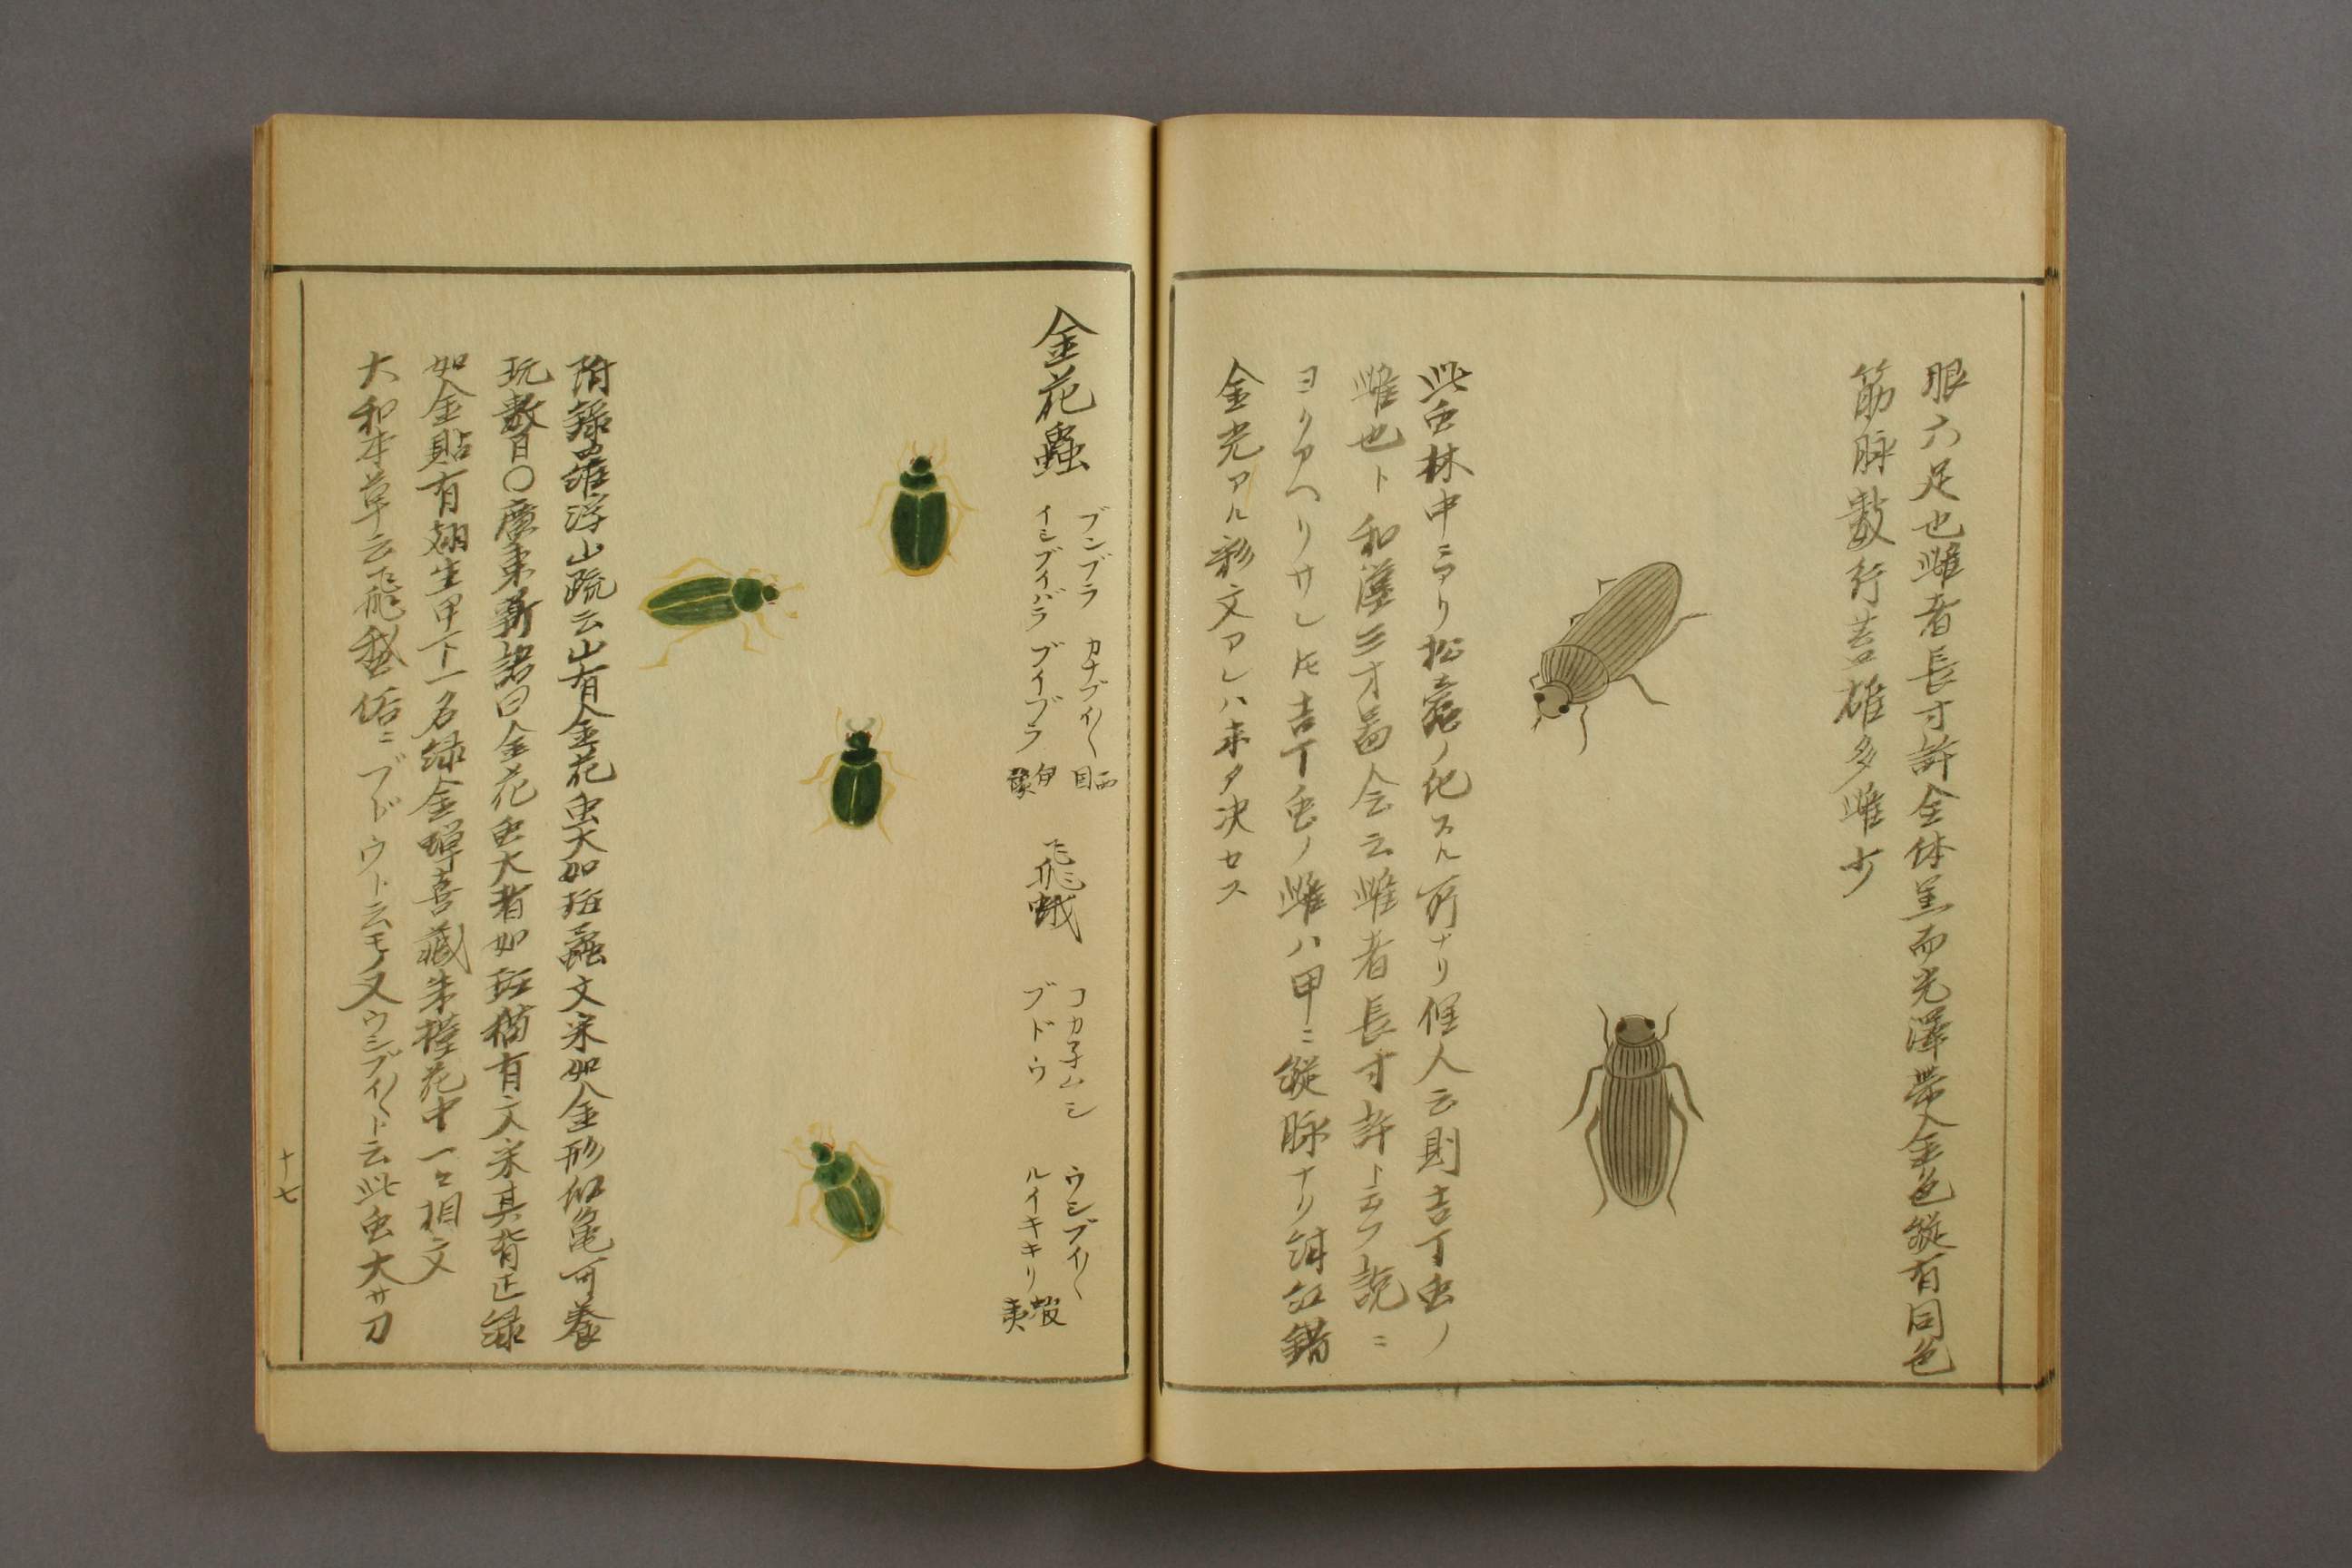 眼六足也雌者長寸許全体黒而光澤帶金色縦有同色
筋脉數行蓋雄多雌少
此虫林中ニアリ松蠧ノ化スル所ナリ俚人云則吉丁虫ノ
雌也ト和漢三才啚会云雌者長寸許ト云フ説ニ
ヨクアヘリサレ𪜈吉丁虫ノ雌ハ甲ニ縦脉ナリ緑紅錯
金光アル彩文アレハ未タ決セス
金花蟲
ブンブラ カナブイ〱 西国
イシブイバラ ブイブラ 伊豫
飛蛾
コカ子ムシ
ブドウ
ウシブイ〱
ルイキキリ 蝦夷
附録羅浮山疏云山有金花虫大如斑蟊文采如金形似亀可養
玩數日〇廣東新語曰金花虫大者如斑猫有文采其背正緑
如金貼有翅生甲下一名緑金蟬喜藏朱槿花中一〻相交
大和本草云飛蛾俗ニブドウト云モノ又ウシブイ〱ト云此虫大サ刀
十七